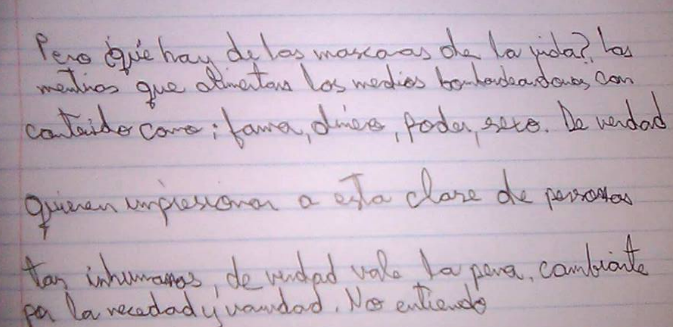 Pero ¿qué hay de las mascaras de la vida? las
mentiras que alimentan los medios bombardeandonos con
contenido como; fama, dinero, poder, sexo. De verdad
quieren impresionar a esta clase de personas
tan inhumanas, de verdad vale la pena, cambiarte
por la necedad y vanidad. No entiendo